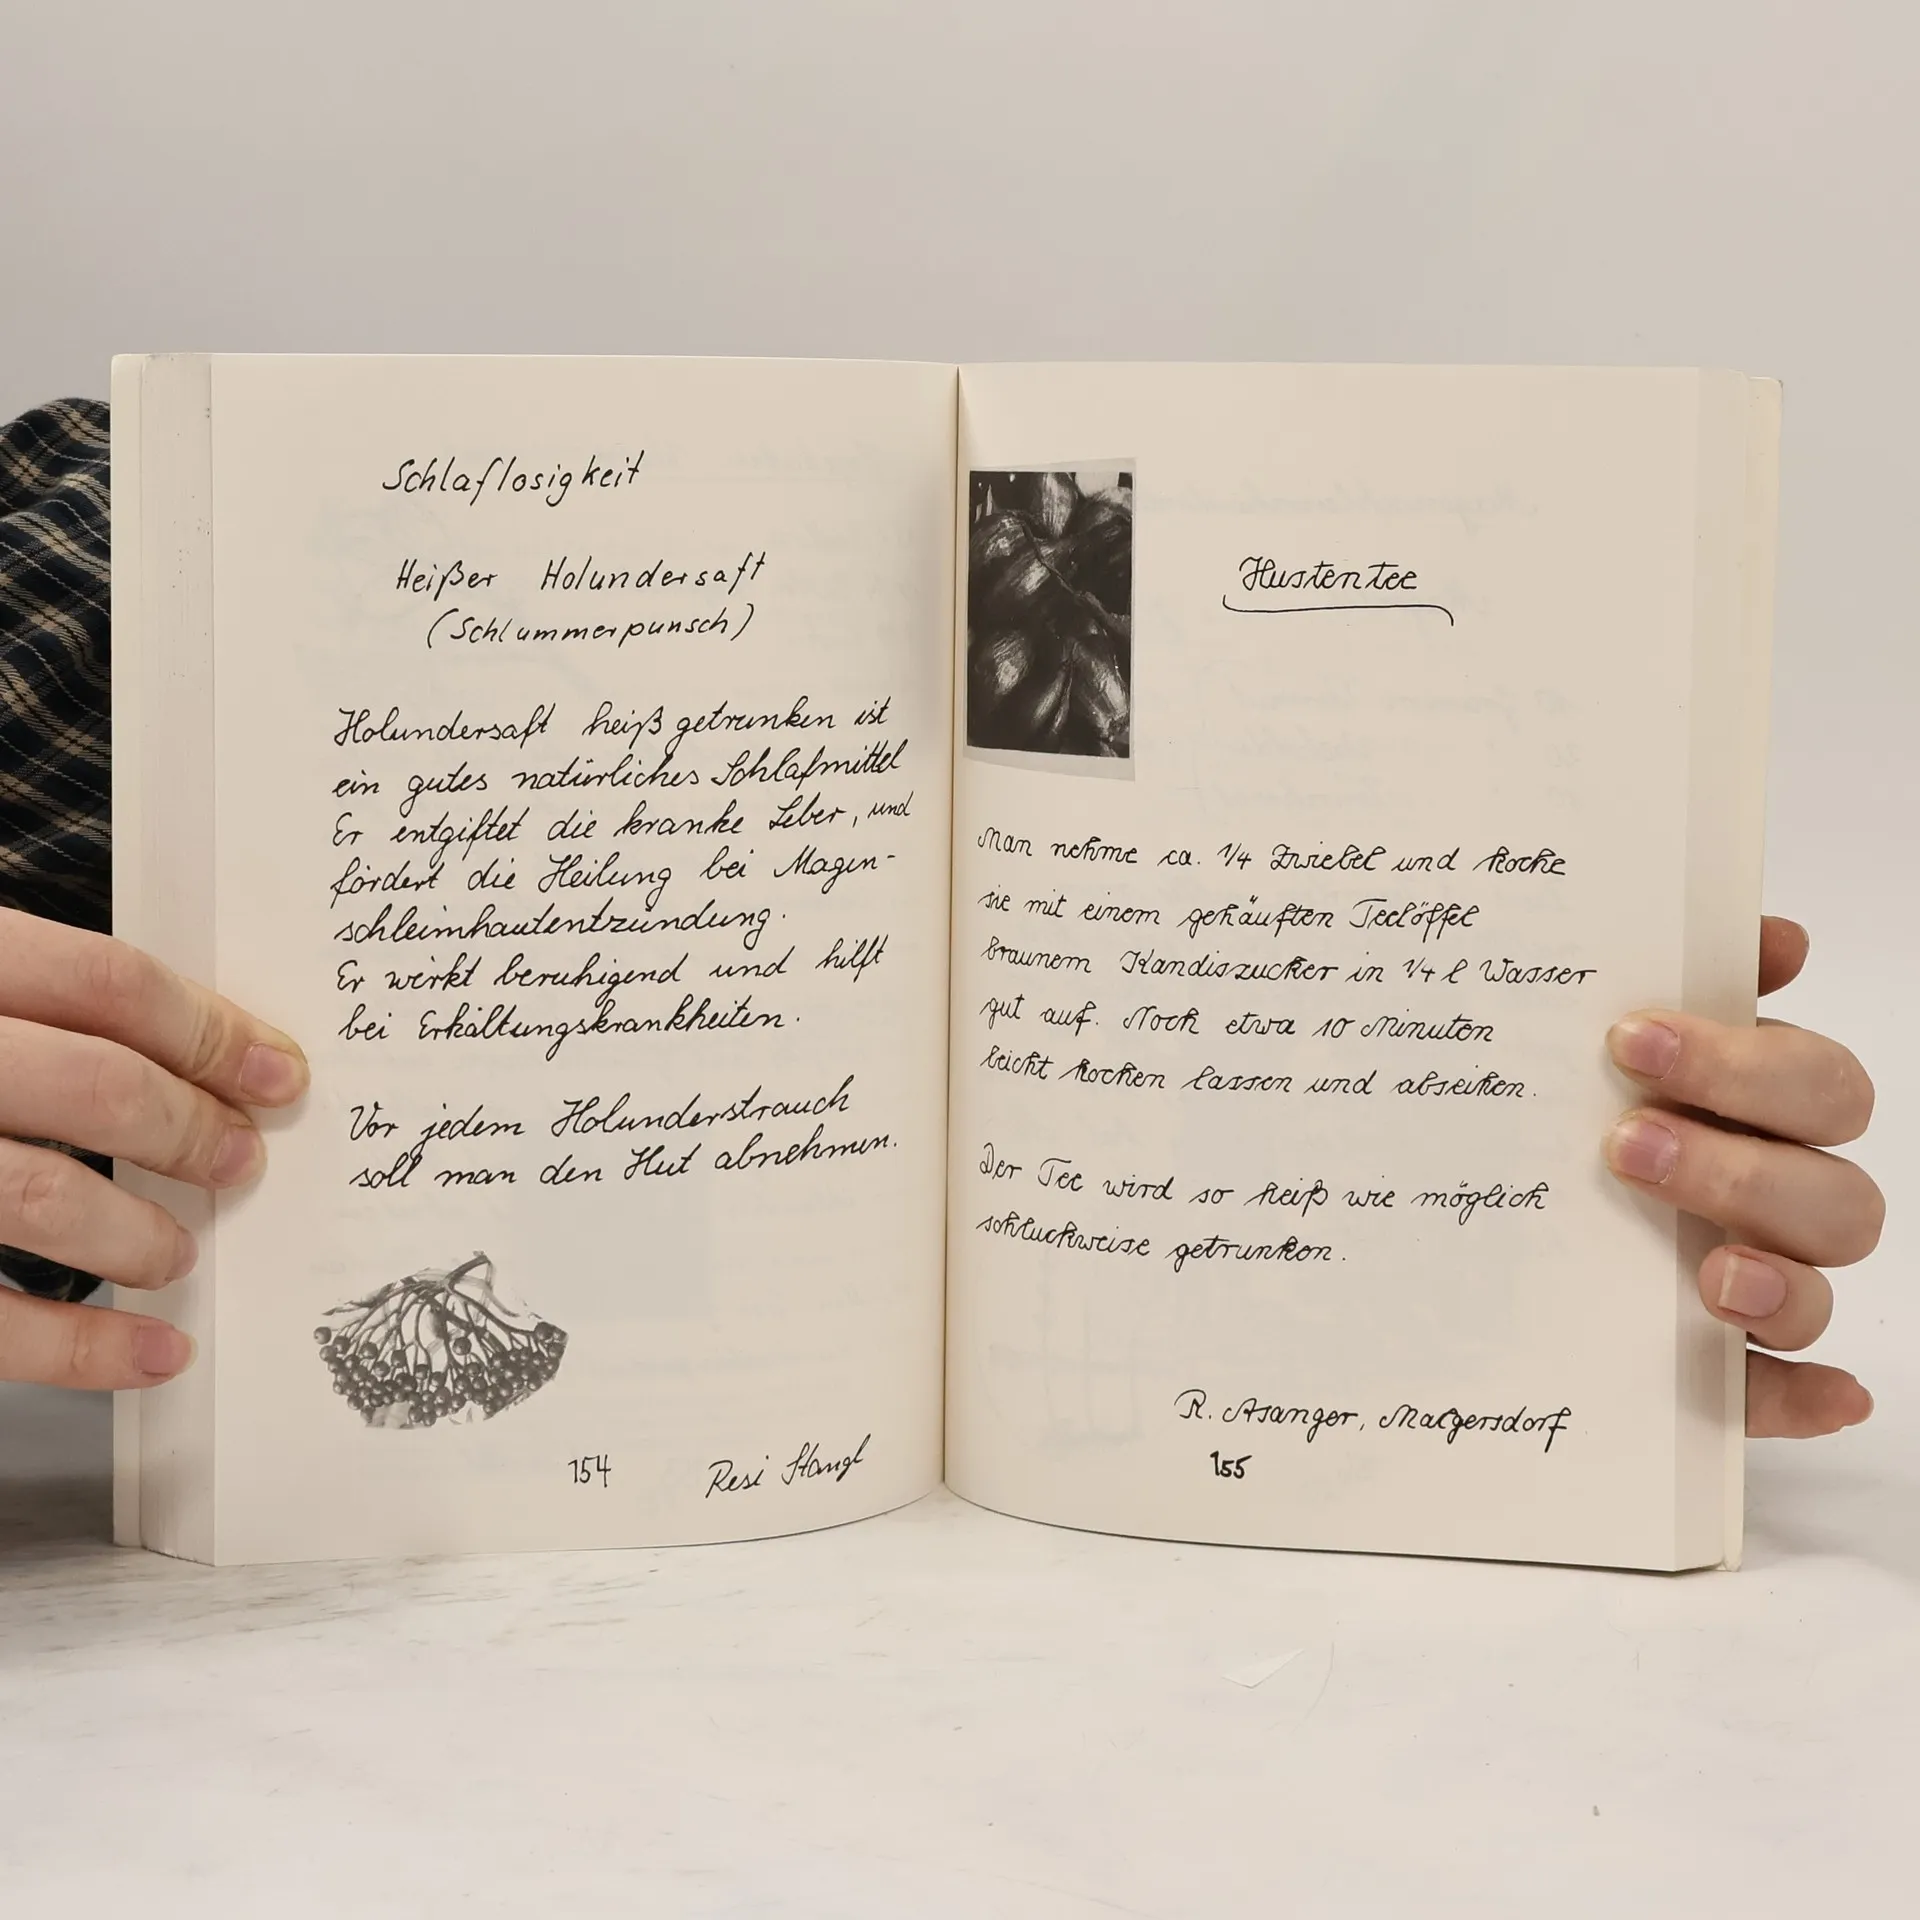 Schlaflosigkeit
Heißer Holundersaft
(Schlummerpunsch)
Holundersaft heiß getrunken ist
ein gutes natürliches Schlafmittel
Er entgiftet die kranke Leber, und
fördert die Heilung bei Magen-
schleimhautentzündung.
Er wirkt beruhigend und hilft
bei Erkältungskrankheiten.
Vor jedem Holunderstrauch
soll man den Hut abnehmen.
154
Resi Stangl
Hustentee
Man nehme ca. 1/4 Zwiebel und koche
sie mit einem gehäuften Teelöffel
braunem Kandiszucker in 1/4 l Wasser
gut auf. Noch etwa 10 Minuten
leicht kochen lassen und abseihen.
Der Tee wird so heiß wie möglich
schluckweise getrunken.
R. Asanger, Malgersdorf
155